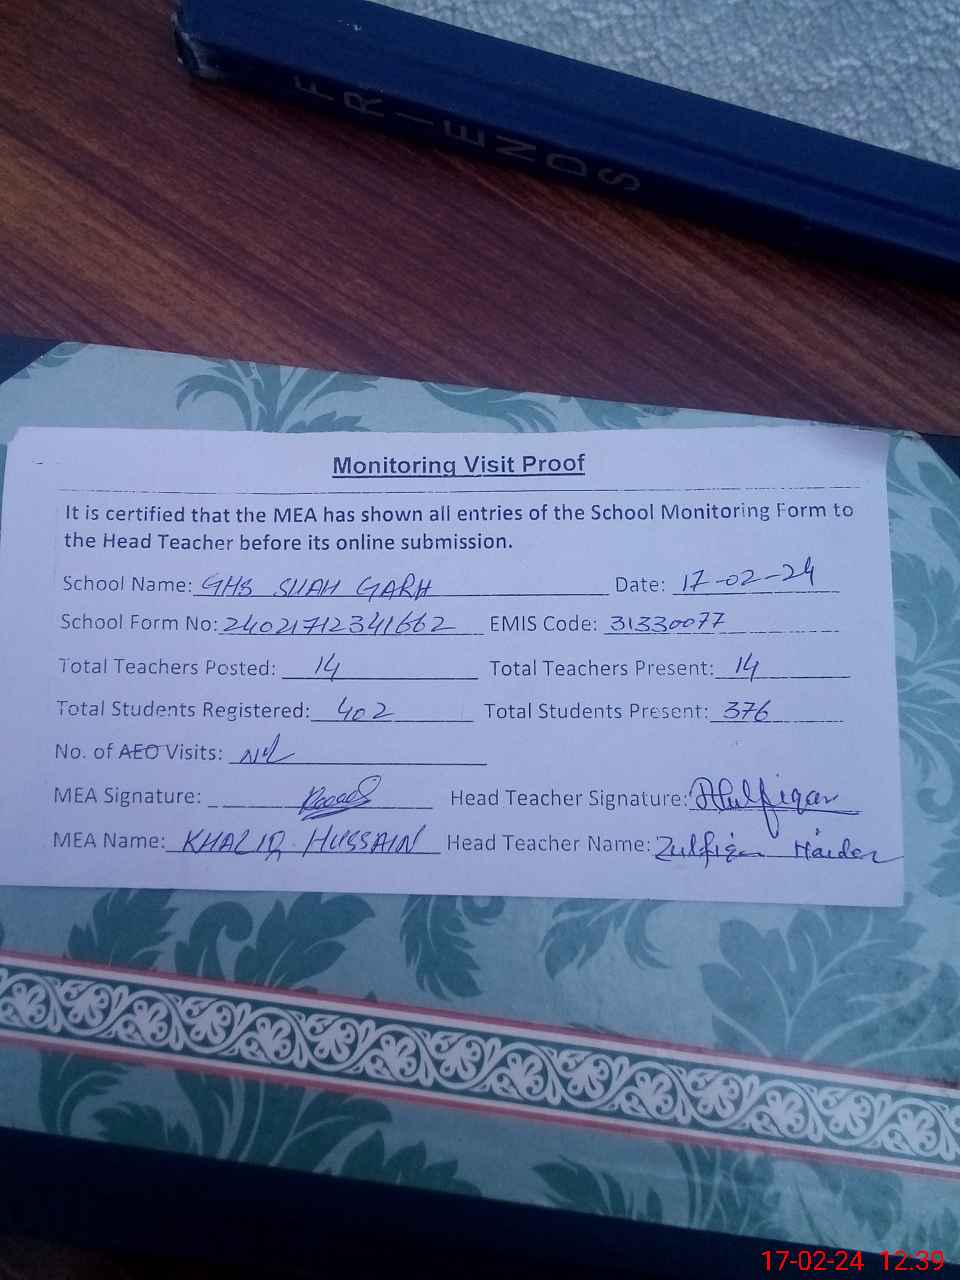 FRIENDS
Monitoring Visit Proof
It is certified that the MEA has shown all entries of the School Monitoring Form to
the Head Teacher before its online submission.
School Name: GHS SHAH GARH Date: 17-02-24
School Form No: 24021712341662 EMIS Code: 31330077
Total Teachers Posted: 14 Total Teachers Present: 14
Total Students Registered: 402 Total Students Present: 376
No. of AEO Visits: Nil
MEA Signature: Head Teacher Signature: Zulfiqar
MEA Name: KHALIQ HUSSAIN Head Teacher Name: Zulfiqar Haider
17-02-24 12:39